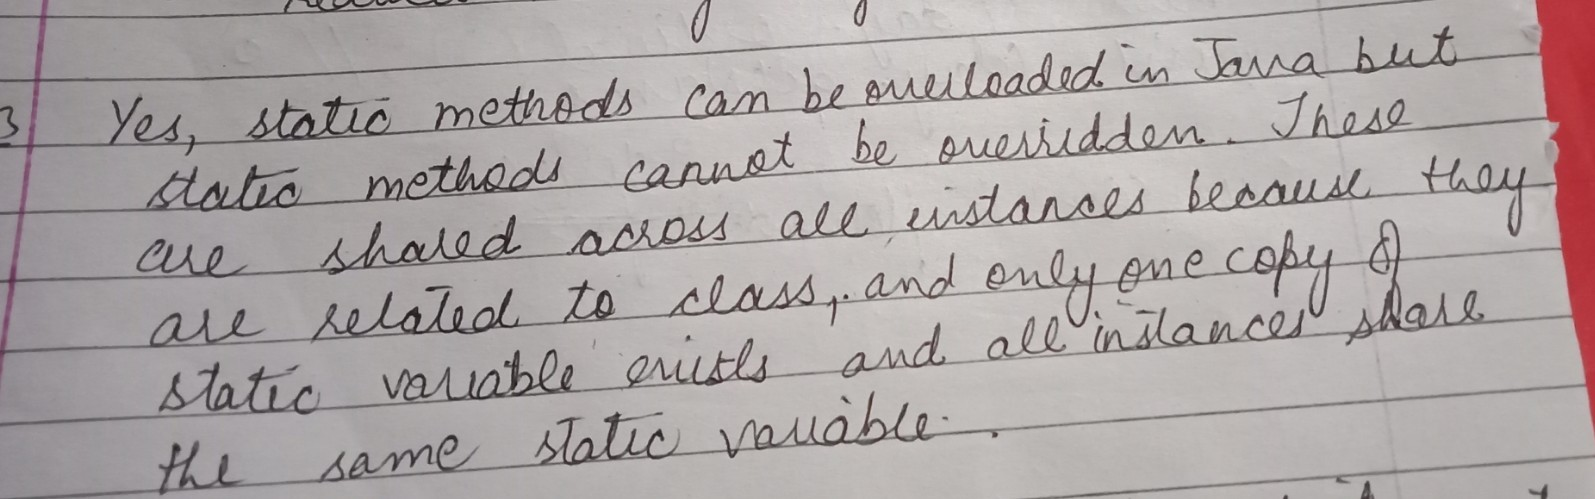 3 Yes, static methods can be overloaded in Java but
static methods cannot be overridden. These
are shared across all instances because they
are related to class, and only one copy of
static variable exists and all instances share
the same static variable.